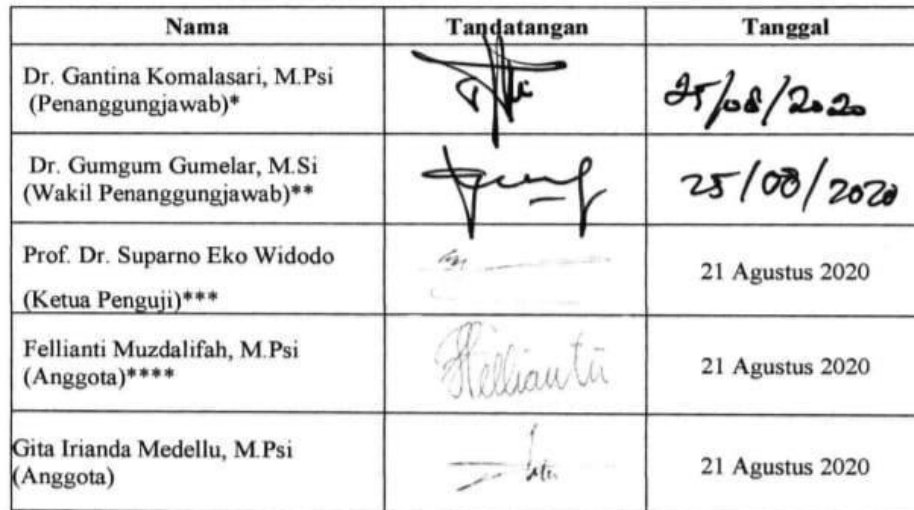 Nama Tandatangan Tanggal
Dr. Gantina Komalasari, M.Psi
(Penanggungjawab)* 25/08/2020
Dr. Gumgum Gumelar, M.Si
(Wakil Penanggungjawab)** 25/08/2020
Prof. Dr. Suparno Eko Widodo
(Ketua Penguji)*** 21 Agustus 2020
Fellianti Muzdalifah, M.Psi
(Anggota)**** 21 Agustus 2020
Gita Irianda Medellu, M.Psi
(Anggota) 21 Agustus 2020